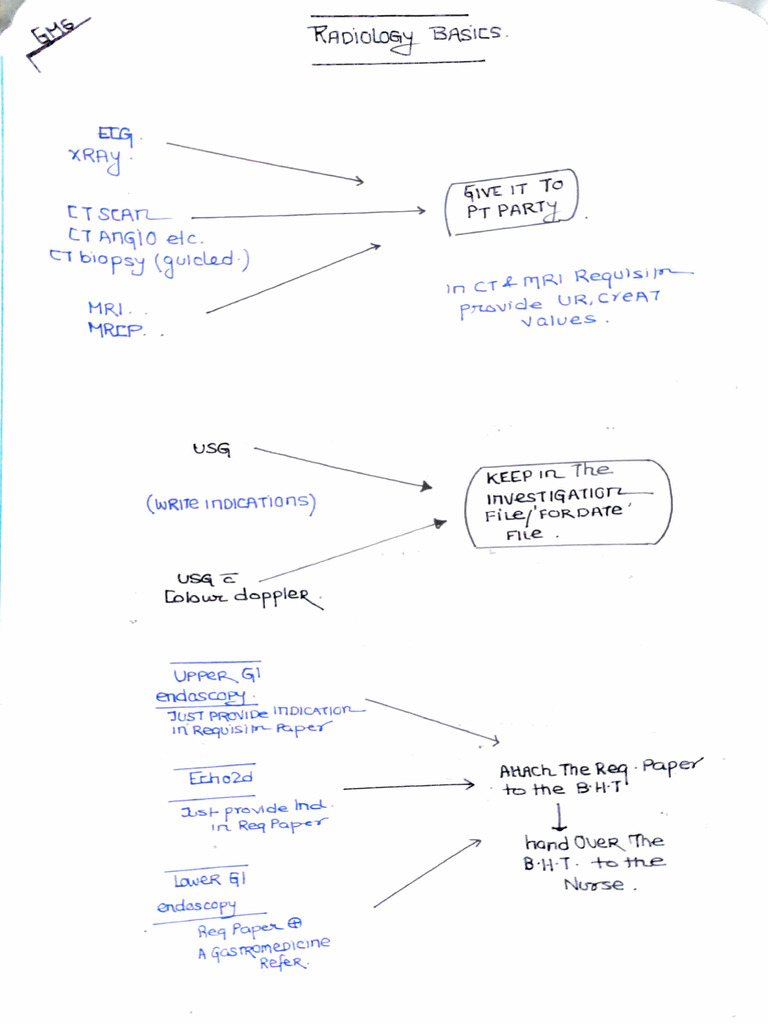 GMG
RADIOLOGY BASICS.
ECG.
XRAY.
CT SCAN
CT ANGIO etc.
CT biopsy (guided.)
MRI..
MRCP..
GIVE IT TO
PT PARTY
in CT & MRI Requisim
provide UR, CreAT
values.
USG
(WRITE INDICATIONS)
USG c̅
Colour doppler.
KEEP in The
investigation
File/'FOR DATE'
File.
UPPER GI
endoscopy.
JUST PROVIDE INDICATION
in Requisim Paper
Echo2d
Just provide Ind.
in Req Paper
Lower GI
endoscopy
Req Paper ⊕
A GASTROMEDICINE
Refer.
Attach The Req. Paper
to the B.H.T
hand OVER The
B.H.T. to the
Nurse.